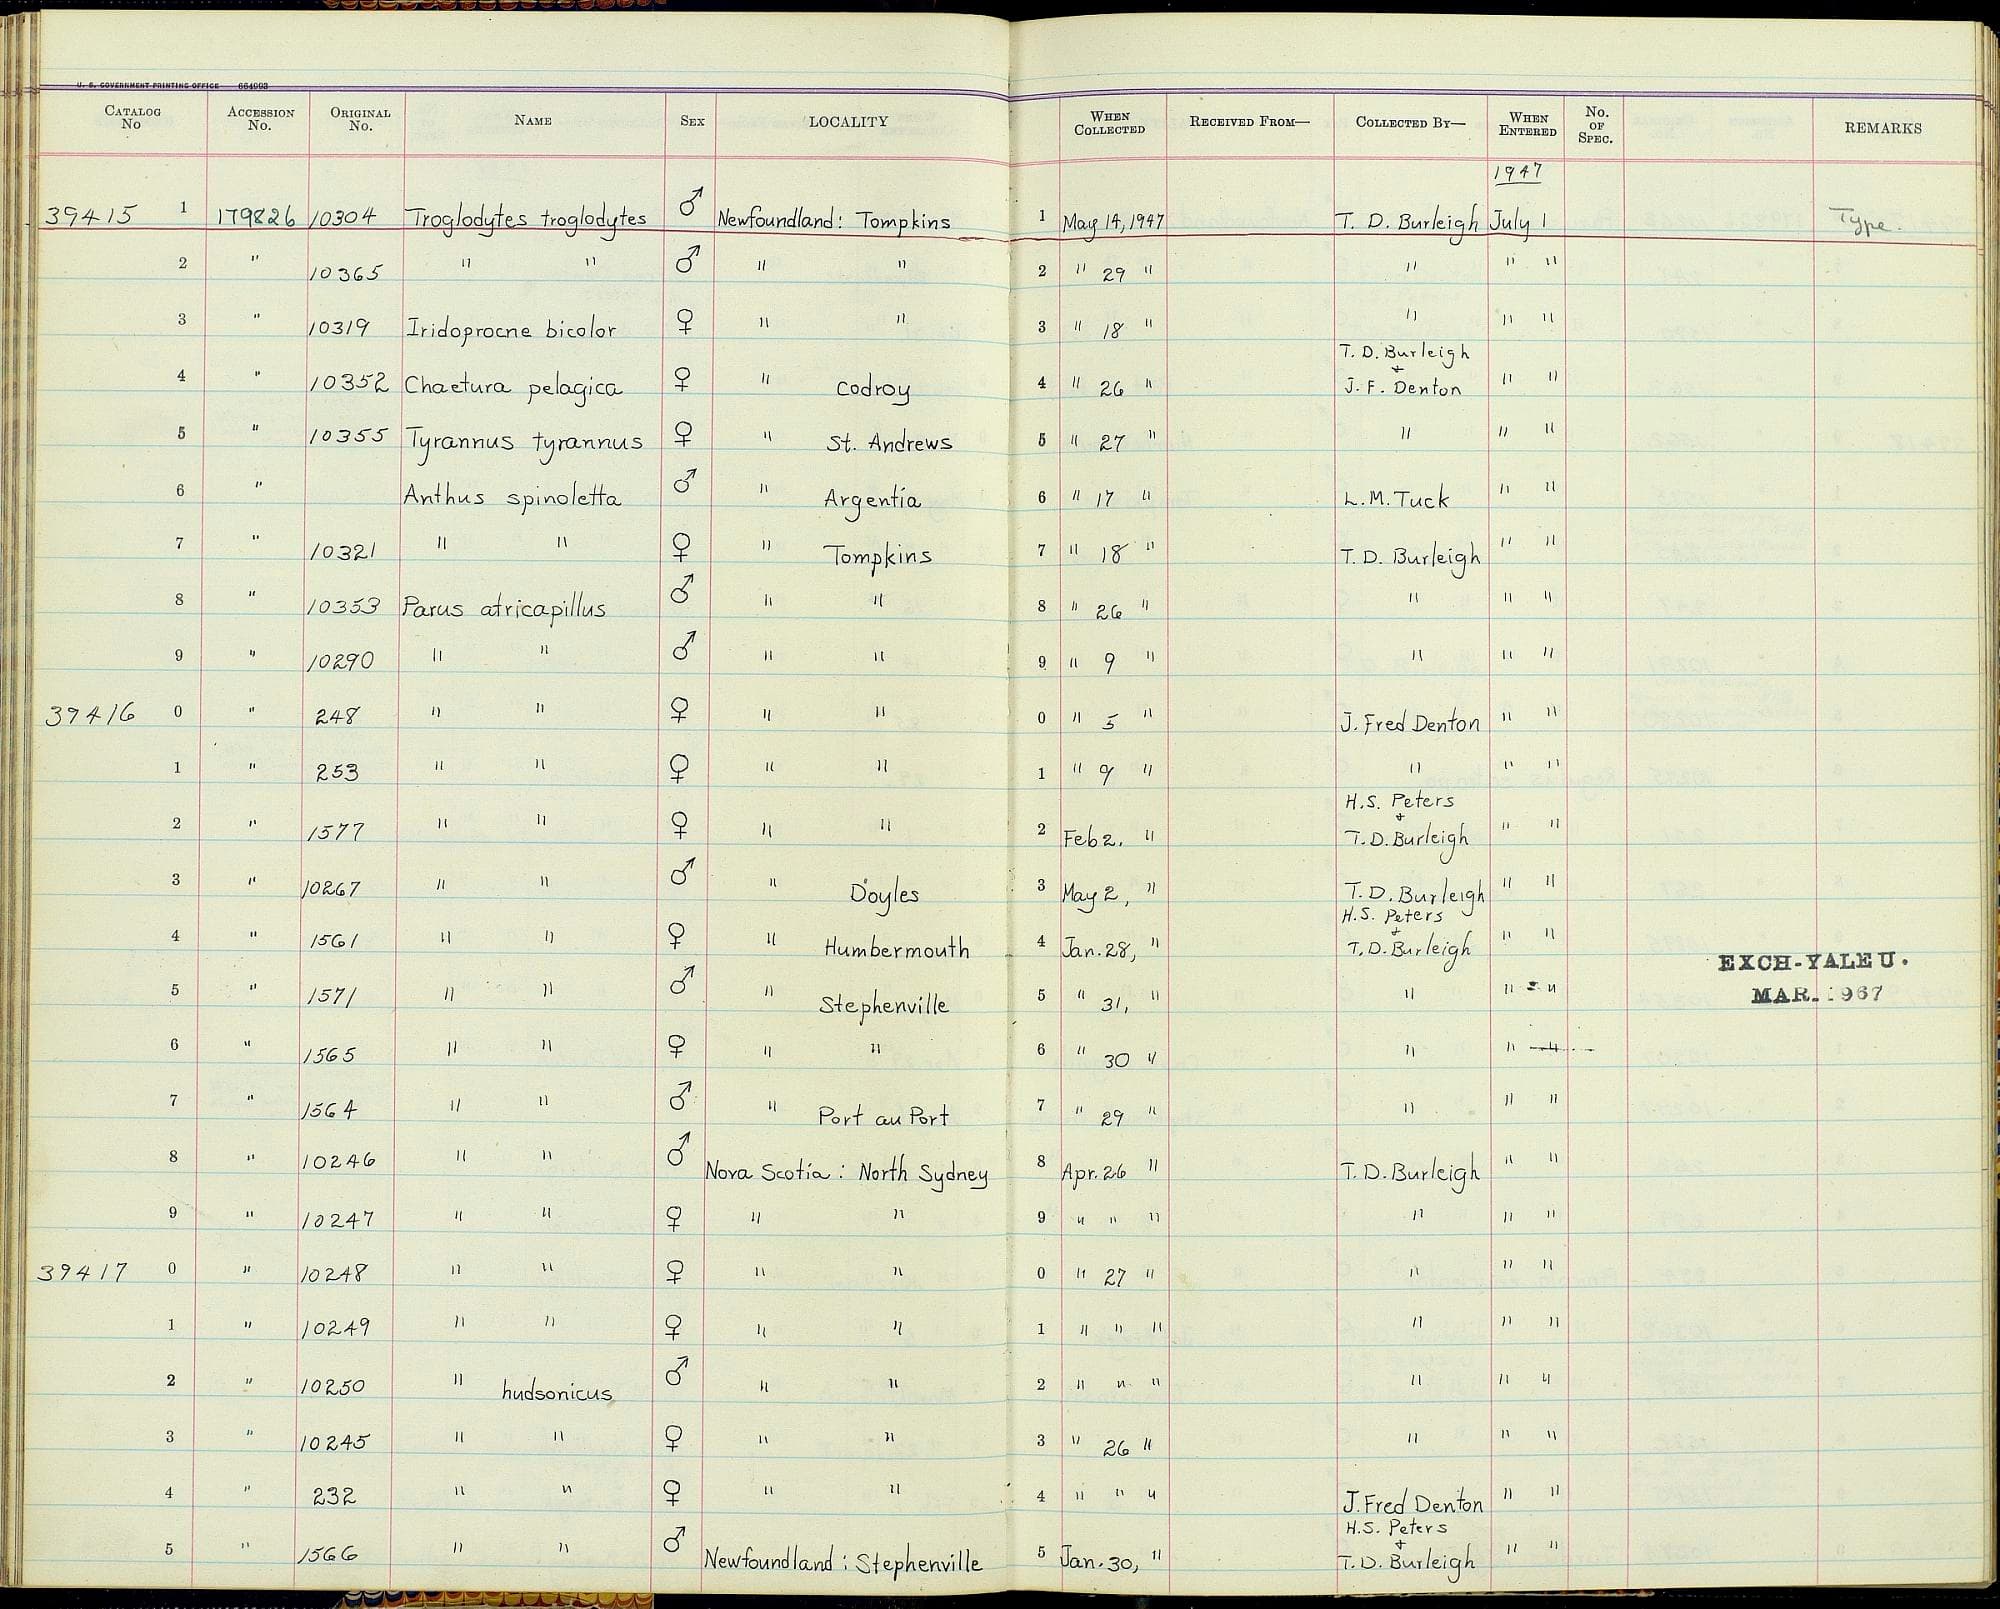 U. S. GOVERNMENT PRINTING OFFICE 664993
CATALOG No ACCESSION No. ORIGINAL No. NAME SEX LOCALITY WHEN COLLECTED RECEIVED FROM— COLLECTED BY— WHEN ENTERED No. OF SPEC. REMARKS
1947
39415 1 179826 10304 Troglodytes troglodytes ♂ Newfoundland: Tompkins 1 May 14, 1947 T. D. Burleigh July 1 Type.
2 " 10365 " " ♂ " " 2 " 29 " " " "
3 " 10319 Iridoprocne bicolor ♀ " " 3 " 18 " " " "
T. D. Burleigh
4 " 10352 Chaetura pelagica ♀ " Codroy 4 " 26 " & J. F. Denton " "
5 " 10355 Tyrannus tyrannus ♀ " St. Andrews 5 " 27 " " " "
6 " Anthus spinoletta ♂ " Argentia 6 " 17 " L. M. Tuck " "
7 " 10321 " " ♀ " Tompkins 7 " 18 " T. D. Burleigh " "
8 " 10353 Parus atricapillus ♂ " " 8 " 26 " " " "
9 " 10290 " " ♂ " " 9 " 9 " " " "
39416 0 " 248 " " ♀ " " 0 " 5 " J. Fred Denton " "
1 " 253 " " ♀ " " 1 " 9 " " " "
H.S. Peters
2 " 1577 " " ♀ " " 2 Feb 2. " & T. D. Burleigh " "
3 " 10267 " " ♂ " Doyles 3 May 2, " T. D. Burleigh " "
H.S. Peters
4 " 1561 " " ♀ " Humbermouth 4 Jan. 28, " & T. D. Burleigh " "
EXCH-YALE U.
5 " 1571 " " ♂ " Stephenville 5 " 31, " " " " MAR. 1967
6 " 1565 " " ♀ " " 6 " 30 " " " "
7 " 1564 " " ♂ " Port au Port 7 " 29 " " " "
8 " 10246 " " ♂ Nova Scotia: North Sydney 8 Apr. 26 " T. D. Burleigh " "
9 " 10247 " " ♀ " " 9 " " " " " "
39417 0 " 10248 " " ♀ " " 0 " 27 " " " "
1 " 10249 " " ♀ " " 1 " " " " " "
2 " 10250 " hudsonicus ♂ " " 2 " " " " " "
3 " 10245 " " ♀ " " 3 " 26 " " " "
4 " 232 " " ♀ " " 4 " " " J. Fred Denton " "
H.S. Peters
5 " 1566 " " ♂ Newfoundland: Stephenville 5 Jan. 30, " & T. D. Burleigh " "